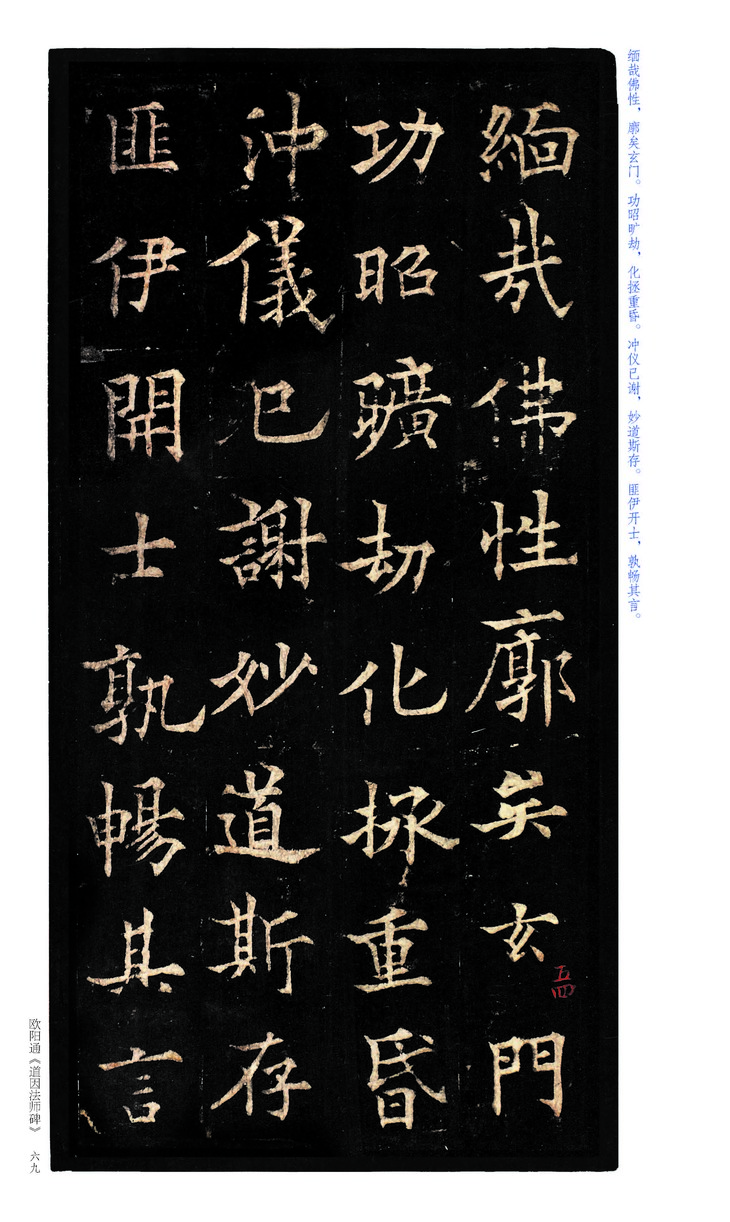 缅哉佛性，廓矣玄门。功昭旷劫，化拯重昏。冲仪已谢，妙道斯存。匪伊开士，孰畅其言。
緬哉佛性廓矣玄門
功昭曠劫化拯重昏
沖儀已謝妙道斯存
匪伊開士孰暢其言
五四
欧阳通《道因法师碑》 六九